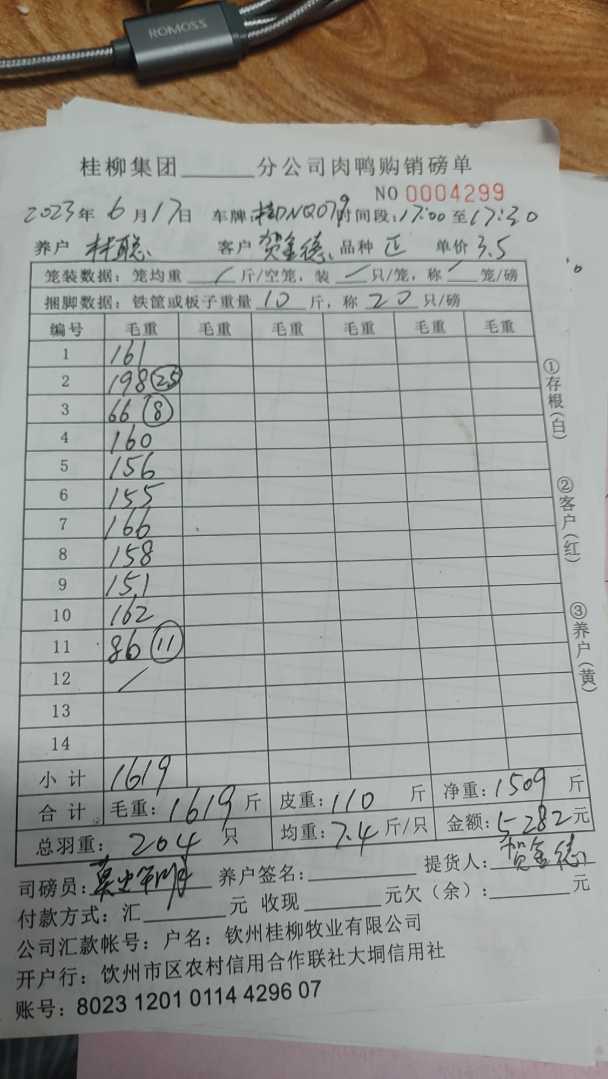 ROMOSS
桂柳集团______分公司肉鸭购销磅单
NO 0004299
2023年 6月17日 车牌:桂DNQ079 时间段:17:00至17:30
养户 林聪 客户 贺金德 品种 正 单价 3.5
笼装数据：笼均重 / 斤/空笼，装 / 只/笼，称 / 笼/磅
捆脚数据：铁筐或板子重量 10 斤，称 20 只/磅
编号 毛重 毛重 毛重 毛重 毛重 毛重
1 161
2 198 (25)
3 66 (8)
4 160
5 156
6 155
7 166
8 158
9 151
10 162
11 86 (11)
12 /
13
14
小计 1619
合计 毛重：1619斤 皮重：110 斤 净重：1509 斤
总羽重：204 只 均重：7.4斤/只 金额：5282元
司磅员： 养户签名：______ 提货人：贺金德
付款方式：汇______元 收现______元欠（余）：______元
公司汇款帐号：户名：钦州桂柳牧业有限公司
开户行：钦州市区农村信用合作联社大垌信用社
账号：8023 1201 0114 4296 07
①存根（白）
②客户（红）
③养户（黄）